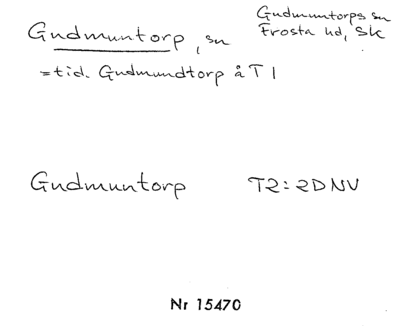 Gudmuntorp, sn
Gudmuntorps sn
Frosta hd, Sk
=tid. Gudmundtorp å T 1
Gudmuntorp T2: 2D NV
Nr 15470